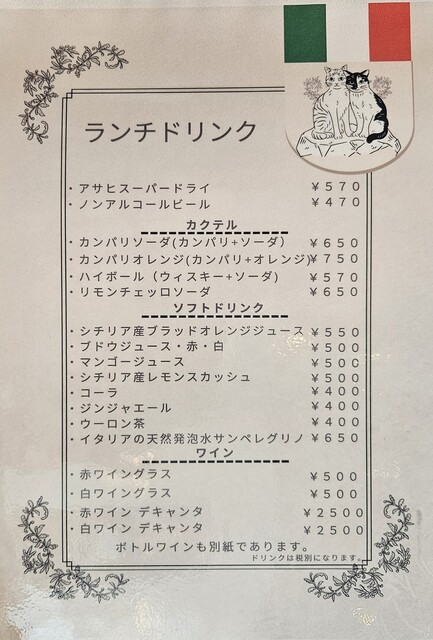 ランチドリンク
・アサヒスーパードライ ￥570
・ノンアルコールビール ￥470
カクテル
・カンパリソーダ(カンパリ+ソーダ) ￥650
・カンパリオレンジ(カンパリ+オレンジ)￥750
・ハイボール (ウィスキー+ソーダ) ￥570
・リモンチェッロソーダ ￥650
ソフトドリンク
・シチリア産ブラッドオレンジジュース ￥550
・ブドウジュース・赤・白 ￥500
・マンゴージュース ￥500
・シチリア産レモンスカッシュ ￥500
・コーラ ￥400
・ジンジャエール ￥400
・ウーロン茶 ￥400
・イタリアの天然発泡水サンペレグリノ ￥650
ワイン
・赤ワイングラス ￥500
・白ワイングラス ￥500
・赤ワイン デキャンタ ￥2500
・白ワイン デキャンタ ￥2500
ボトルワインも別紙であります。
ドリンクは税別になります。